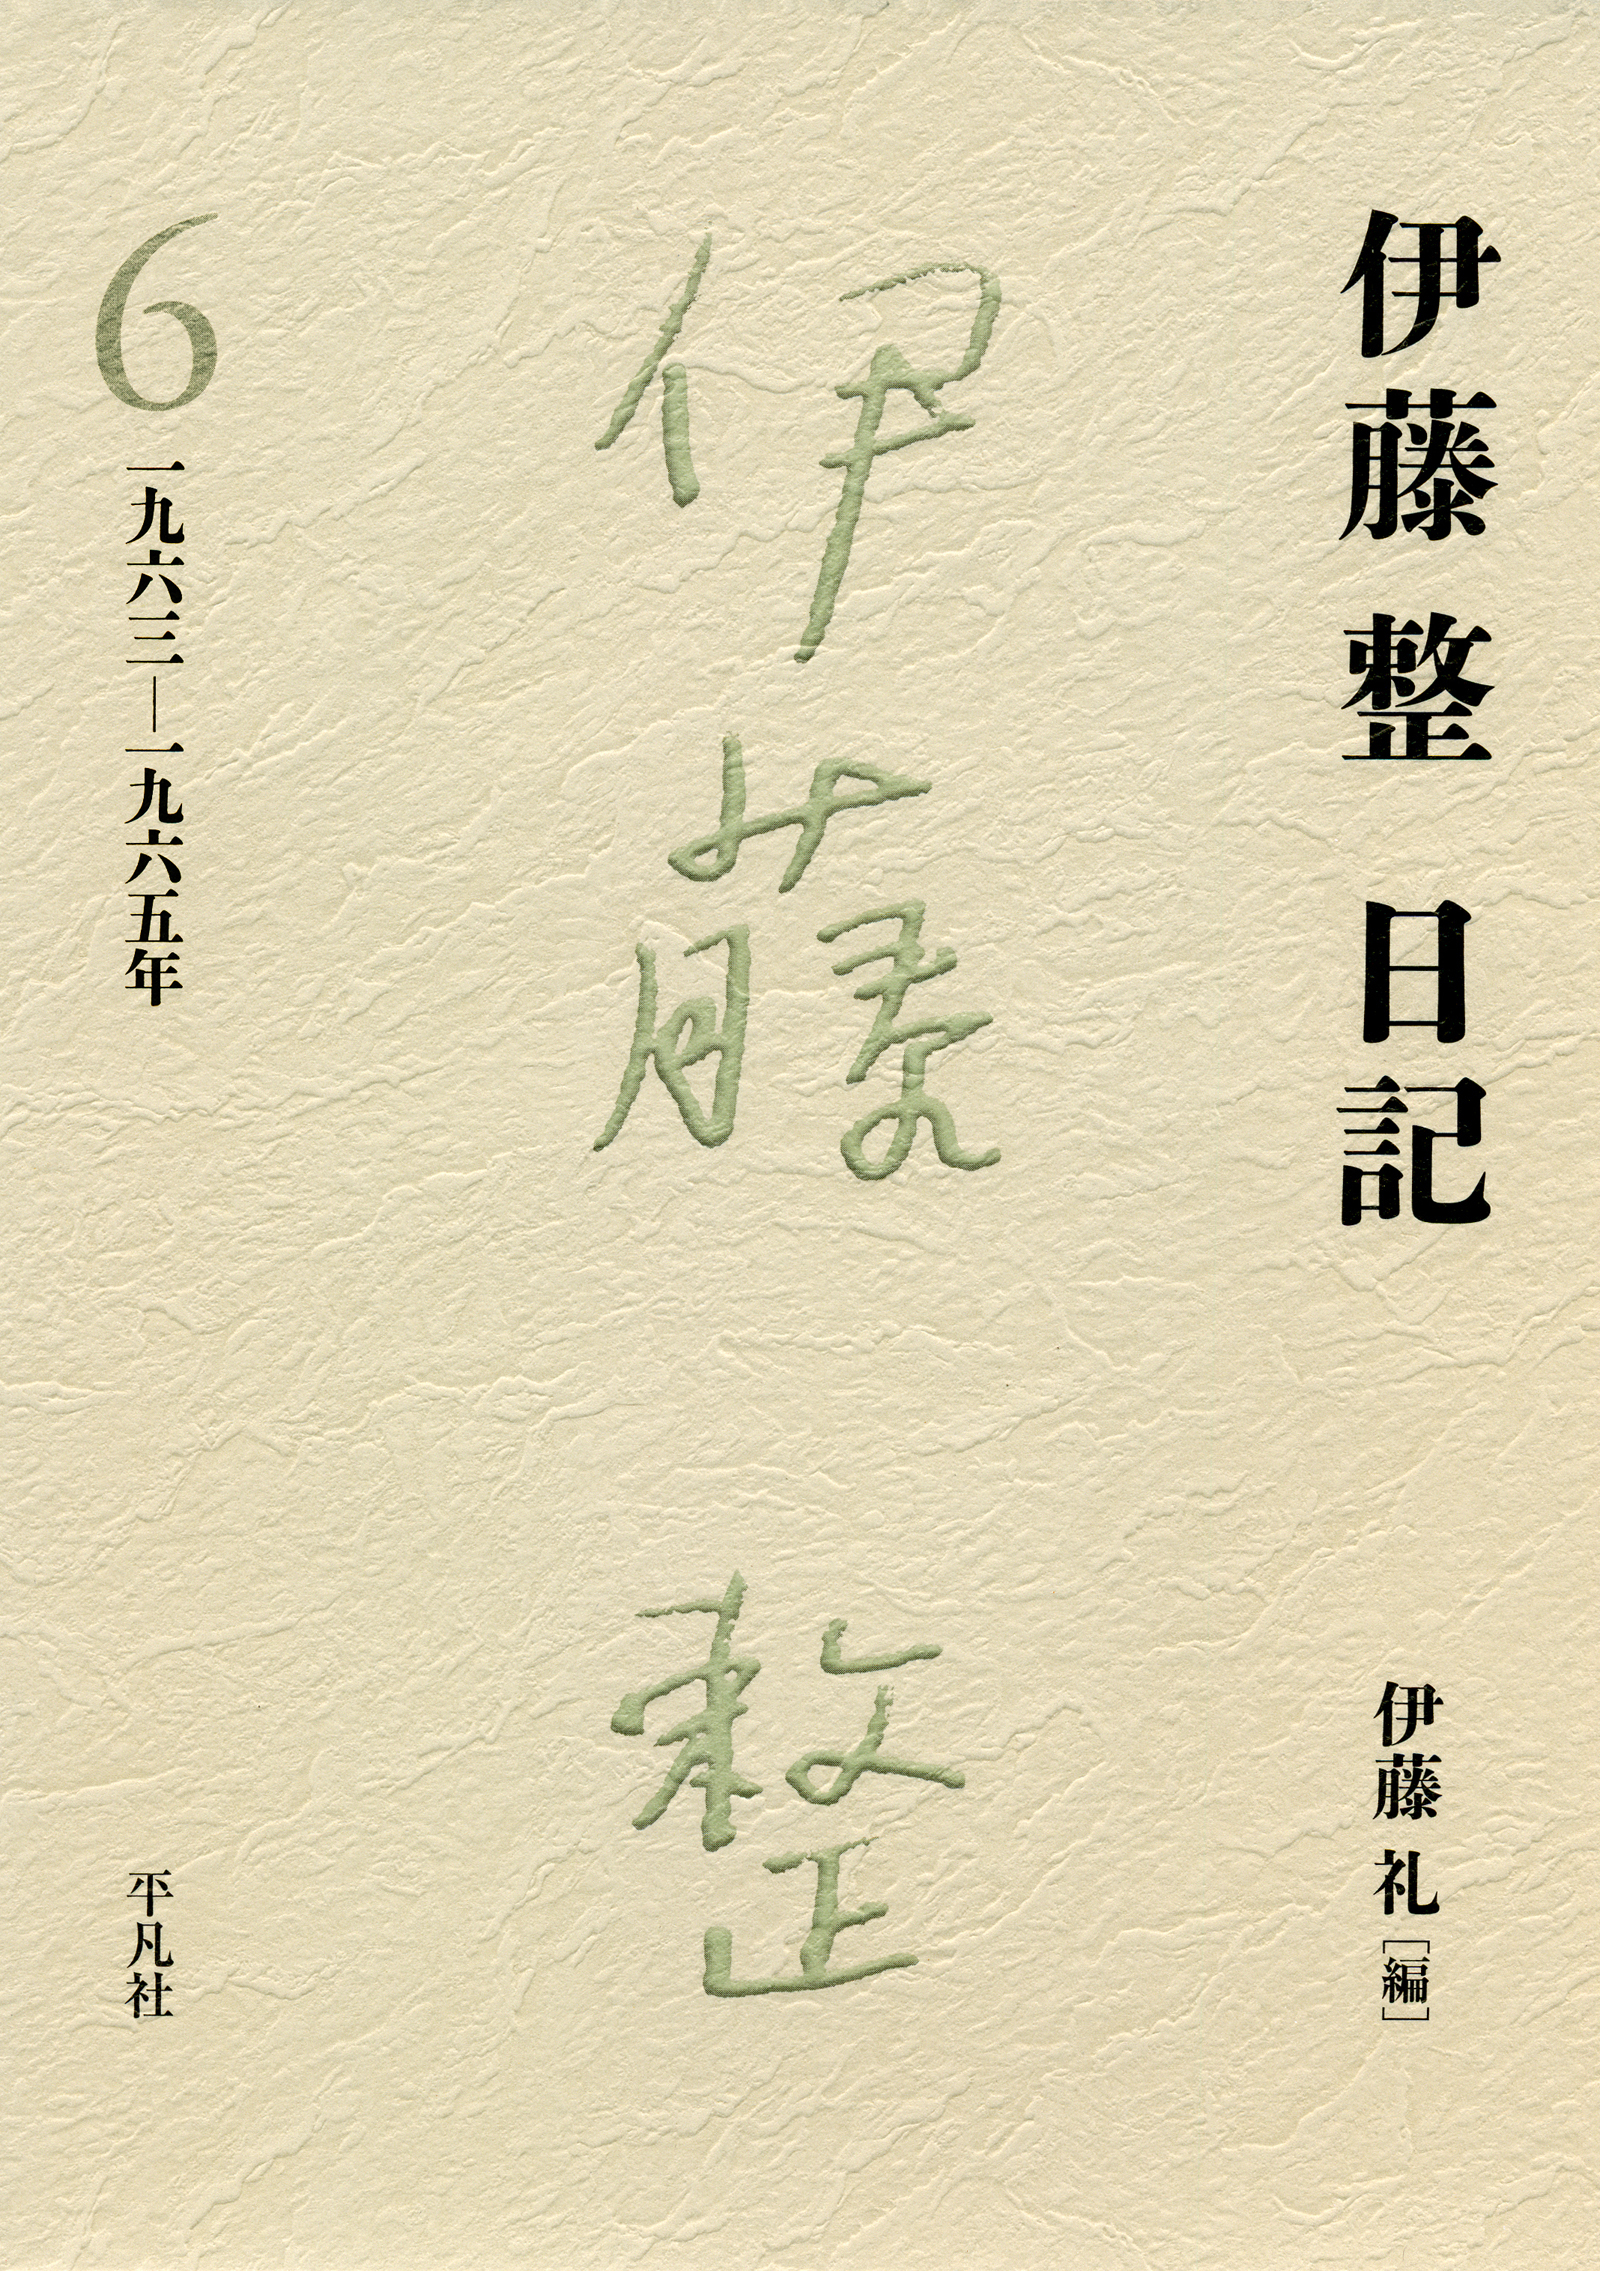 伊藤 整 日記
伊藤 礼[編]
伊藤 整
6
一九六三―一九六五年
平凡社